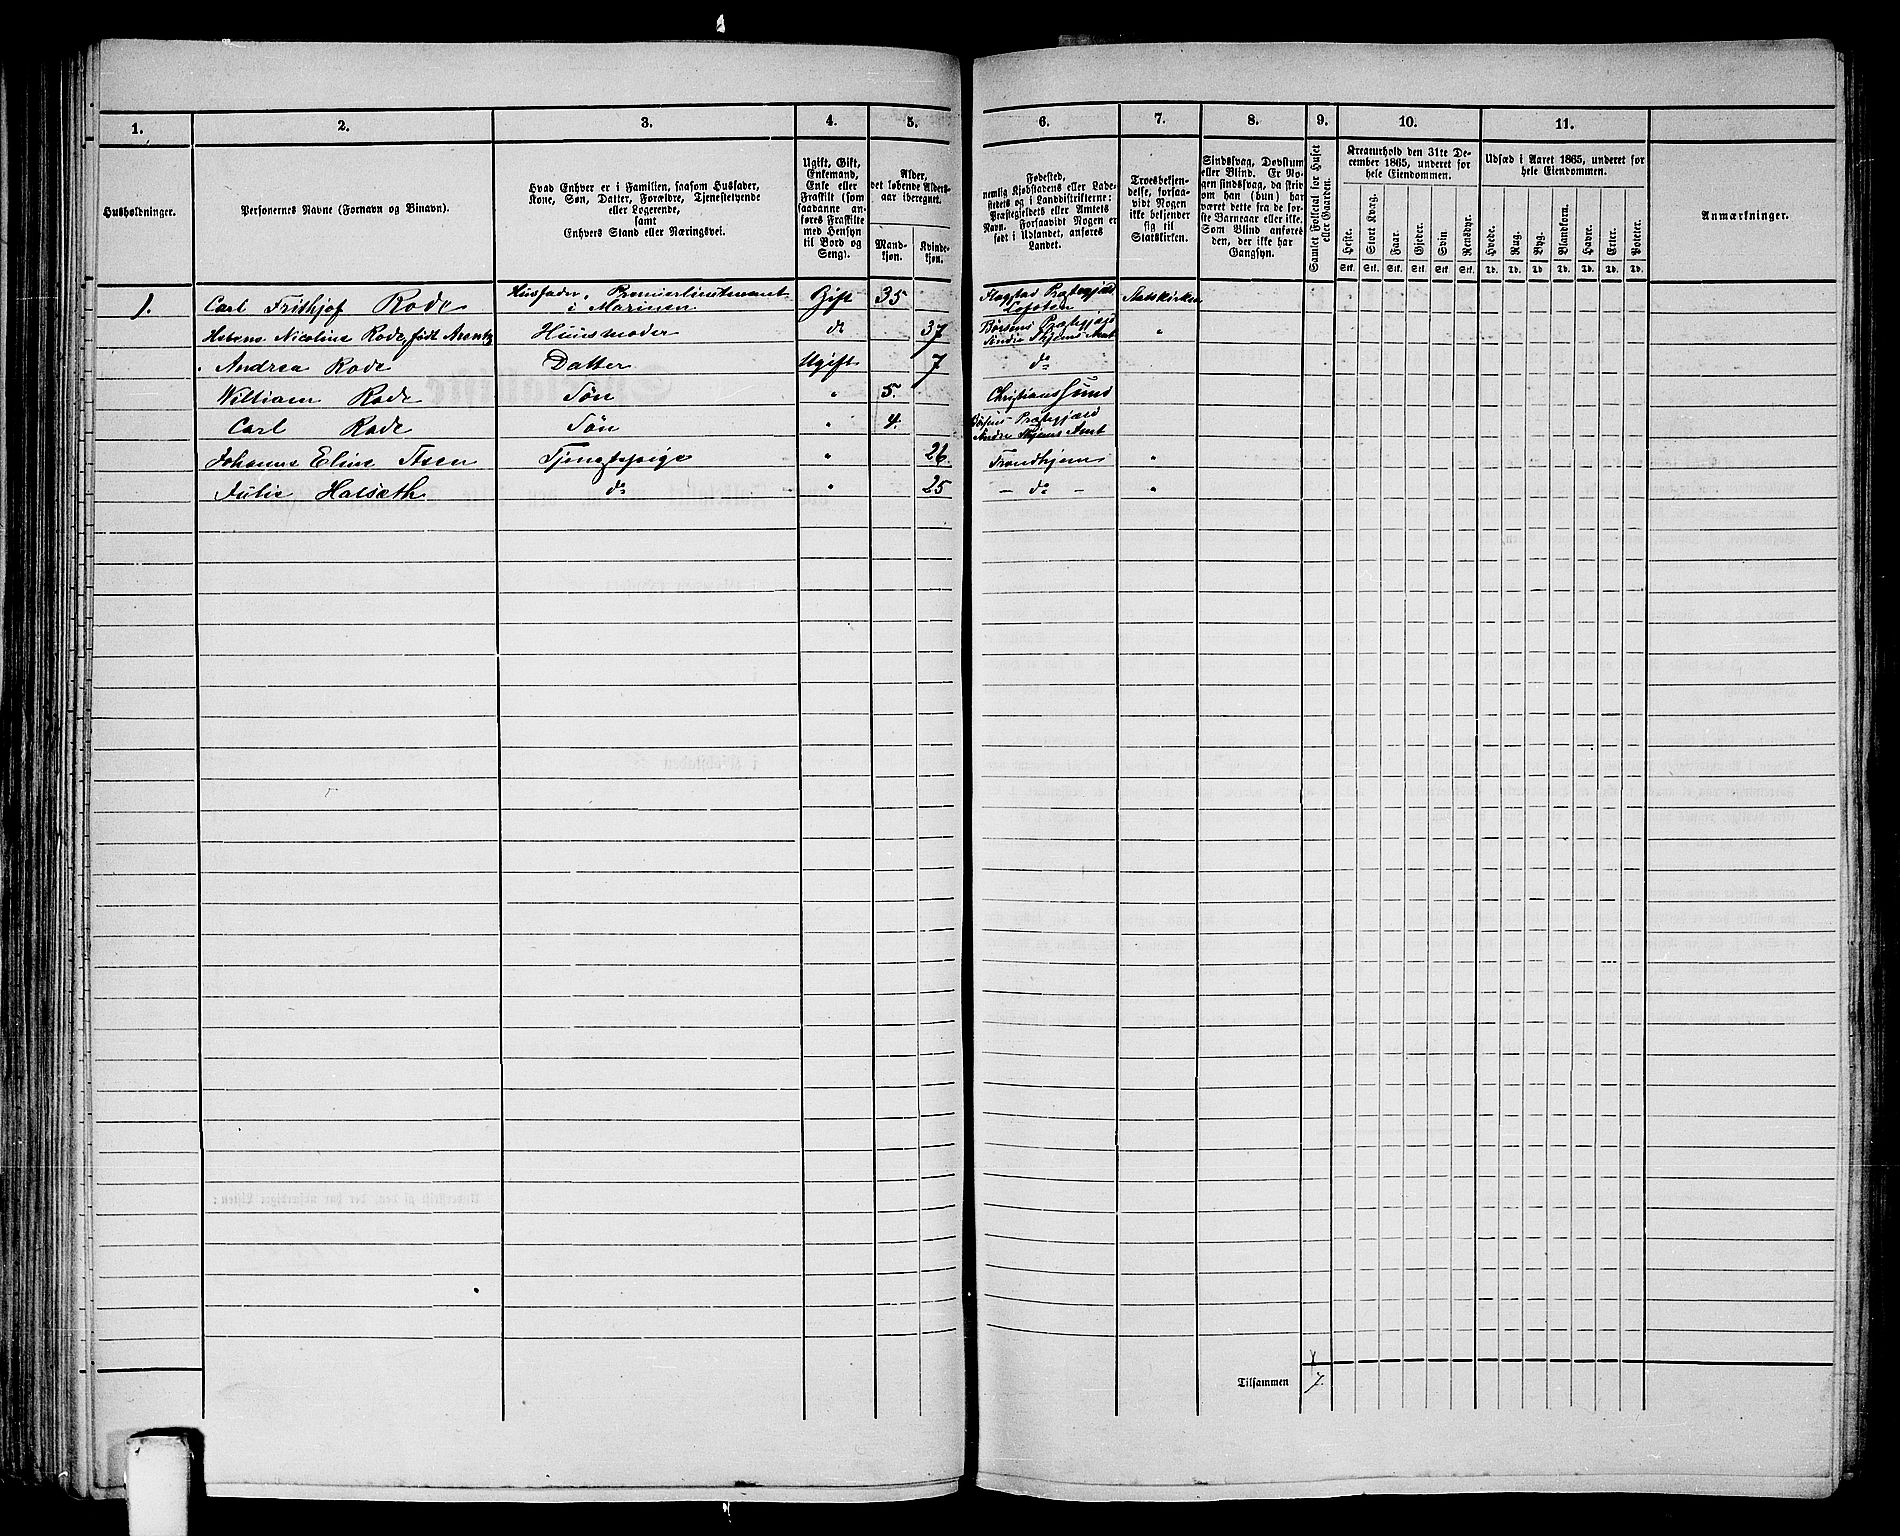 1. 2. 3. 4. 5. 6. 7. 8. 9. 10. 11.
Husholdninger.
Personernes Navne (Fornavn og Binavn).
Hvad Enhver er i Familien, saasom Husfader,
Kone, Søn, Datter, Forældre, Tjenestetyende
eller Logerende,
samt
Enhvers Stand eller Næringsvei.
Ugift, Gift,
Enkemand,
Enke eller
Fraskilt (som
saadanne an-
føres Fraskilte
med Hensyn
til Bord og
Seng).
Alder,
det løbende Alders-
aar iberegnet.
Mand-
kjøn.
Kvinde-
kjøn.
Fødested,
nemlig Kjøbstadens eller Lade-
stedets og i Landdistrikterne:
Præstegjeldets eller Amtets
Navn. Forsaavidt Nogen er
født i Udlandet, anføres
Landet.
Troesbekjen-
delse, forsaa-
vidt Nogen
ikke bekjender
sig til
Statskirken.
Sindssvag, Døvstum
eller Blind. Er No-
gen sindssvag, da skriv
om han (hun) har
været dette fra de før-
ste Barneaar eller ikke.
Som Blind anføres
den, der ikke har
Gangsyn.
Samlet Folketal for Huset
eller Gaarden.
Kreaturhold den 31te De-
cember 1865, underet for
hele Eiendommen.
Heste.
Stort Kvæg.
Faar.
Gjeder.
Svin
Rensdyr.
Stk. Stk. Stk. Stk. Stk. Stk.
Udsæd i Aaret 1865, underet for
hele Eiendommen.
Hvede.
Rug.
Byg.
Blandkorn.
Havre.
Erter.
Poteter.
Td. Td. Td. Td. Td. Td. Td.
Anmærkninger.
1. Carl Frithjof Rode Husfader, Premierlieutenant i Marinen Gift 35 Flagstad Præstegjæld Lofoten Statskirken
Nicoline Rode, født Arentz Huusmoder do 37 Børsens Præstegjæld Søndre Thjems Amt "
Andrea Rode Datter Ugift 7 do
William Rode Søn " 5. Christianssund
Carl Rode Søn " 4. Børsens Præstegjæld Søndre Thjems Amt
Johanne Eline Tjenestepige " 26. Trondhjem "
Julie Halseth do " 25 - do - "
Tilsammen 7.